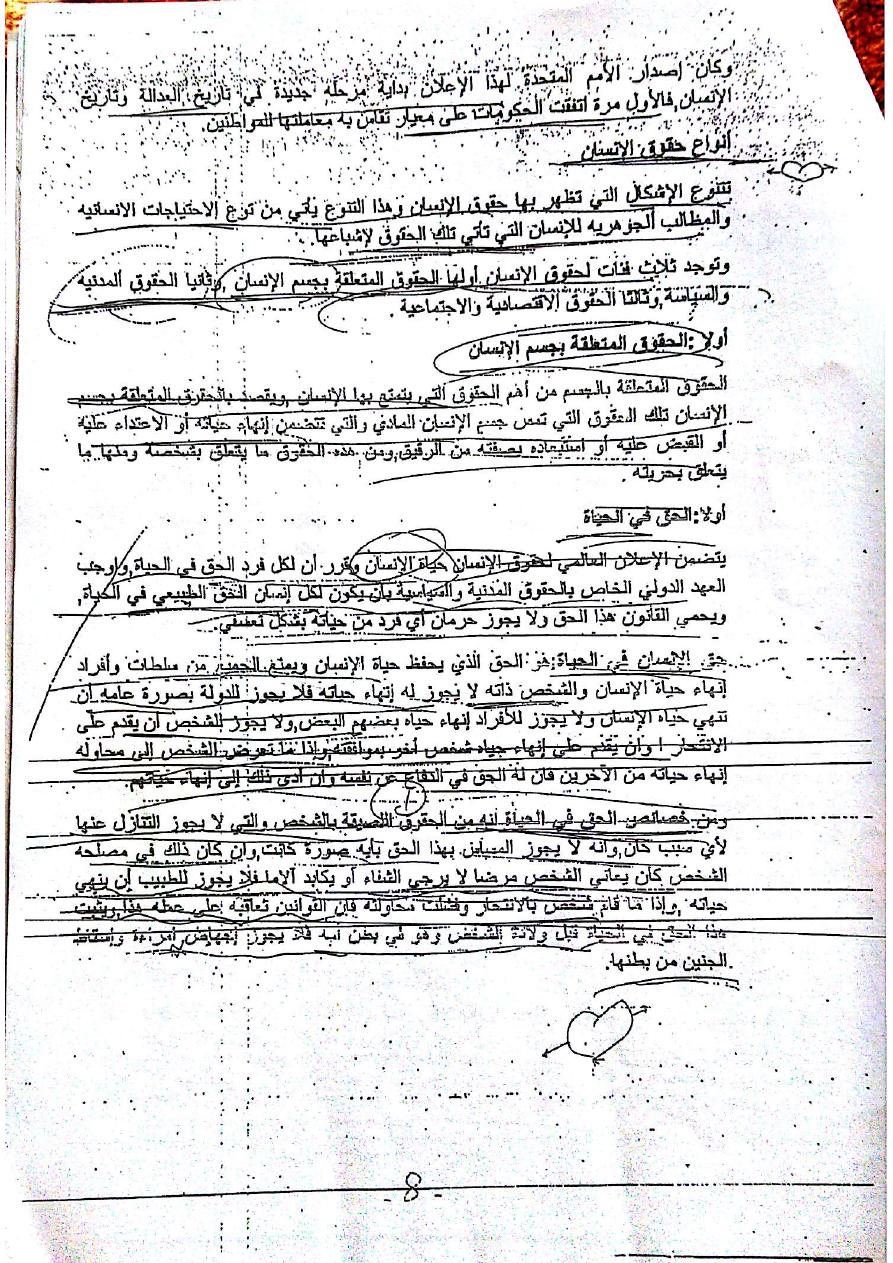 وكان إصدار الأمم المتحدة لهذا الإعلان بداية مرحلة جديدة في تاريخ العدالة وتاريخ
الإنسان,فالأول مرة اتفقت الحكومات على معيار تقاس به معاملتها للمواطنين.
أنواع حقوق الإنسان
تتنوع الإشكال التي تظهر بها حقوق الإنسان وهذا التنوع يأتي من توع الاحتياجات الانسانيه
والمطالب الجوهريه للإنسان التي تأتي تلك الحقوق لإشباعها.
وتوجد ثلاث فئات لحقوق الإنسان أولها الحقوق المتعلقة بجسم الإنسان ,وثانيا الحقوق المدنيه
والسياسة,وثالثا الحقوق الاقتصادية والاجتماعية .
أولا :الحقوق المتعلقة بجسم الإنسان
الحقوق المتعلقة بالجسم من أهم الحقوق التي يتمتع بها الإنسان ,ويقصد بالحقوق المتعلقة بجسم
الإنسان تلك الحقوق التي تمس جسم الإنسان المادي والتي تتضمن إنهاء حياته أو الاعتداء عليه
أو القبض عليه أو استعباده بصفته من الرقيق,ومن هذه الحقوق ما يتعلق بشخصه ومنها ما
يتعلق بحريته .
أولا:الحق في الحياة
يتضمن الإعلان العالمي لحقوق الإنسان حياة الإنسان وقرر أن لكل فرد الحق في الحياة,وأوجب
العهد الدولي الخاص بالحقوق المدنية والسياسية بأن يكون لكل إنسان الحق الطبيعي في الحياة,
ويحمي القانون هذا الحق ولا يجوز حرمان أي فرد من حياته بشكل تعسفي.
حق الإنسان في الحياة:هو الحق الذي يحفظ حياة الإنسان ويمنع الجميع من سلطات وأفراد
إنهاء حياة الإنسان والشخص ذاته لا يجوز له إنهاء حياته فلا يجوز للدولة بصورة عامه أن
تنهي حياه الإنسان ولا يجوز للأفراد إنهاء حياه بعضهم البعض,ولا يجوز للشخص أن يقدم على
الانتحار ا وان يقدم على إنهاء حياه شخص أخر بموافقته,وإذا ما تعرض الشخص إلى محاوله
إنهاء حياته من الآخرين فان له الحق في الدفاع عن نفسه وان أدى ذلك إلى إنهاء حياتهم.
ومن خصائص الحق في الحياة انه من الحقوق اللصيقة بالشخص والتي لا يجوز التنازل عنها
لأي سبب كان,وانه لا يجوز المساس بهذا الحق بأيه صورة كانت,وان كان ذلك في مصلحه
الشخص كان يعاني الشخص مرضا لا يرجي الشفاء أو يكابد آلاما فلا يجوز للطبيب إن ينهي
حياته ,وإذا ما قام شخص بالانتحار وفشلت محاولته فان القوانين تعاقبه على عمله هذا,ويثبت
هذا الحق في الحياة قبل ولادة الشخص وهو في بطن أمه فلا يجوز إجهاض امرأة وإسقاط
الجنين من بطنها.
- 8 -